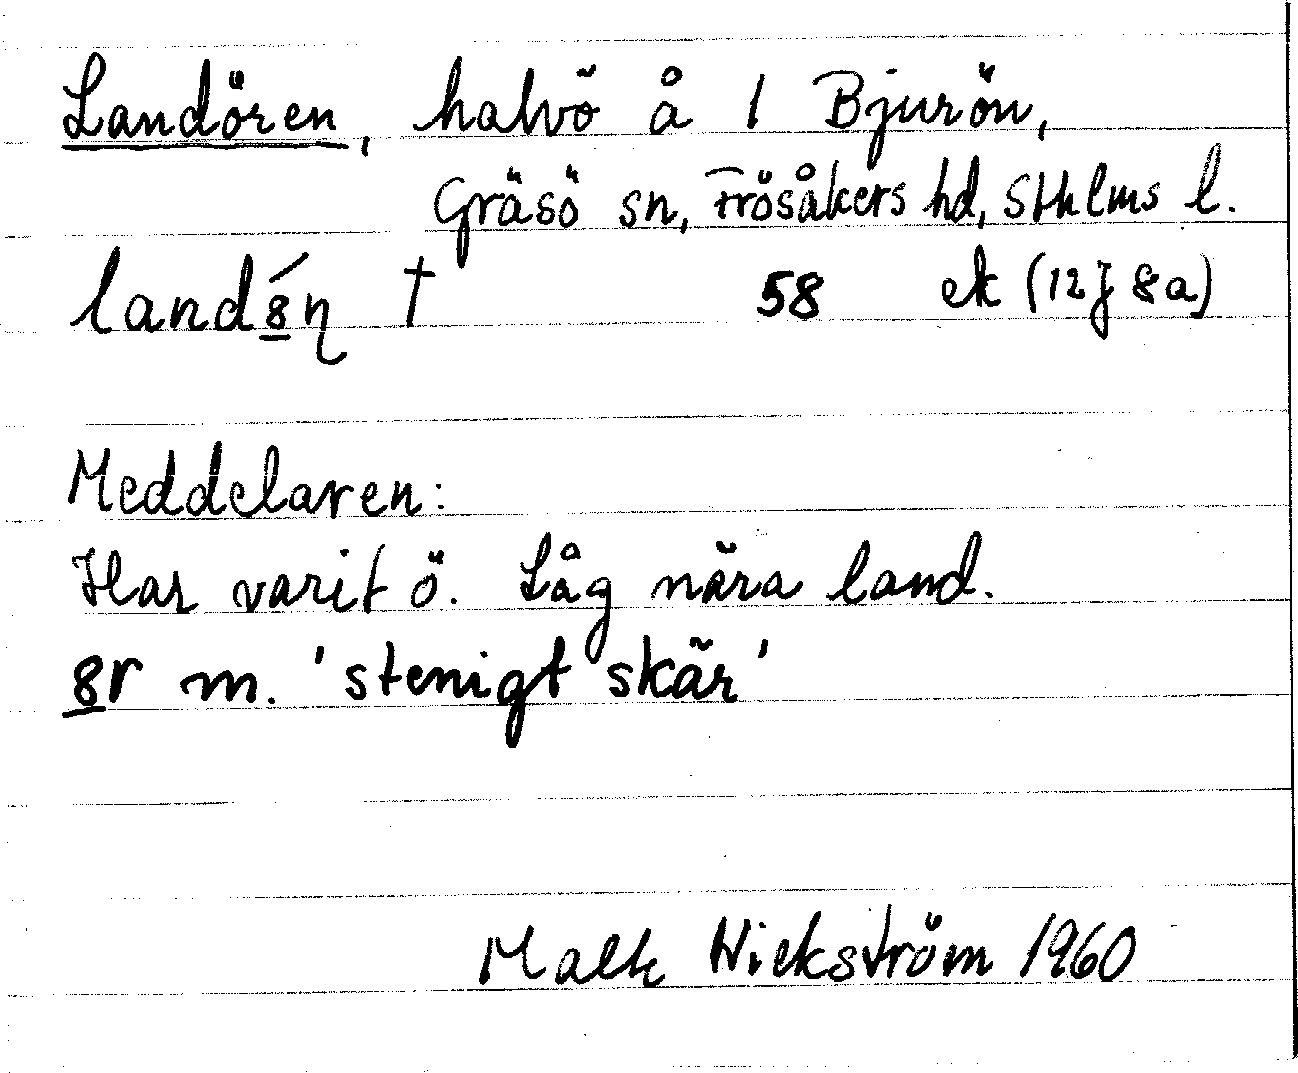 Landören, halvö å 1 Bjurön,
Gräsö sn, Frösåkers hd, Sthlms l.
land8́ŋ † 58 ek (12J 8a)
Meddelaren:
Har varit ö. Låg nära land.
8r m. 'stenigt skär'
Wickström 1960